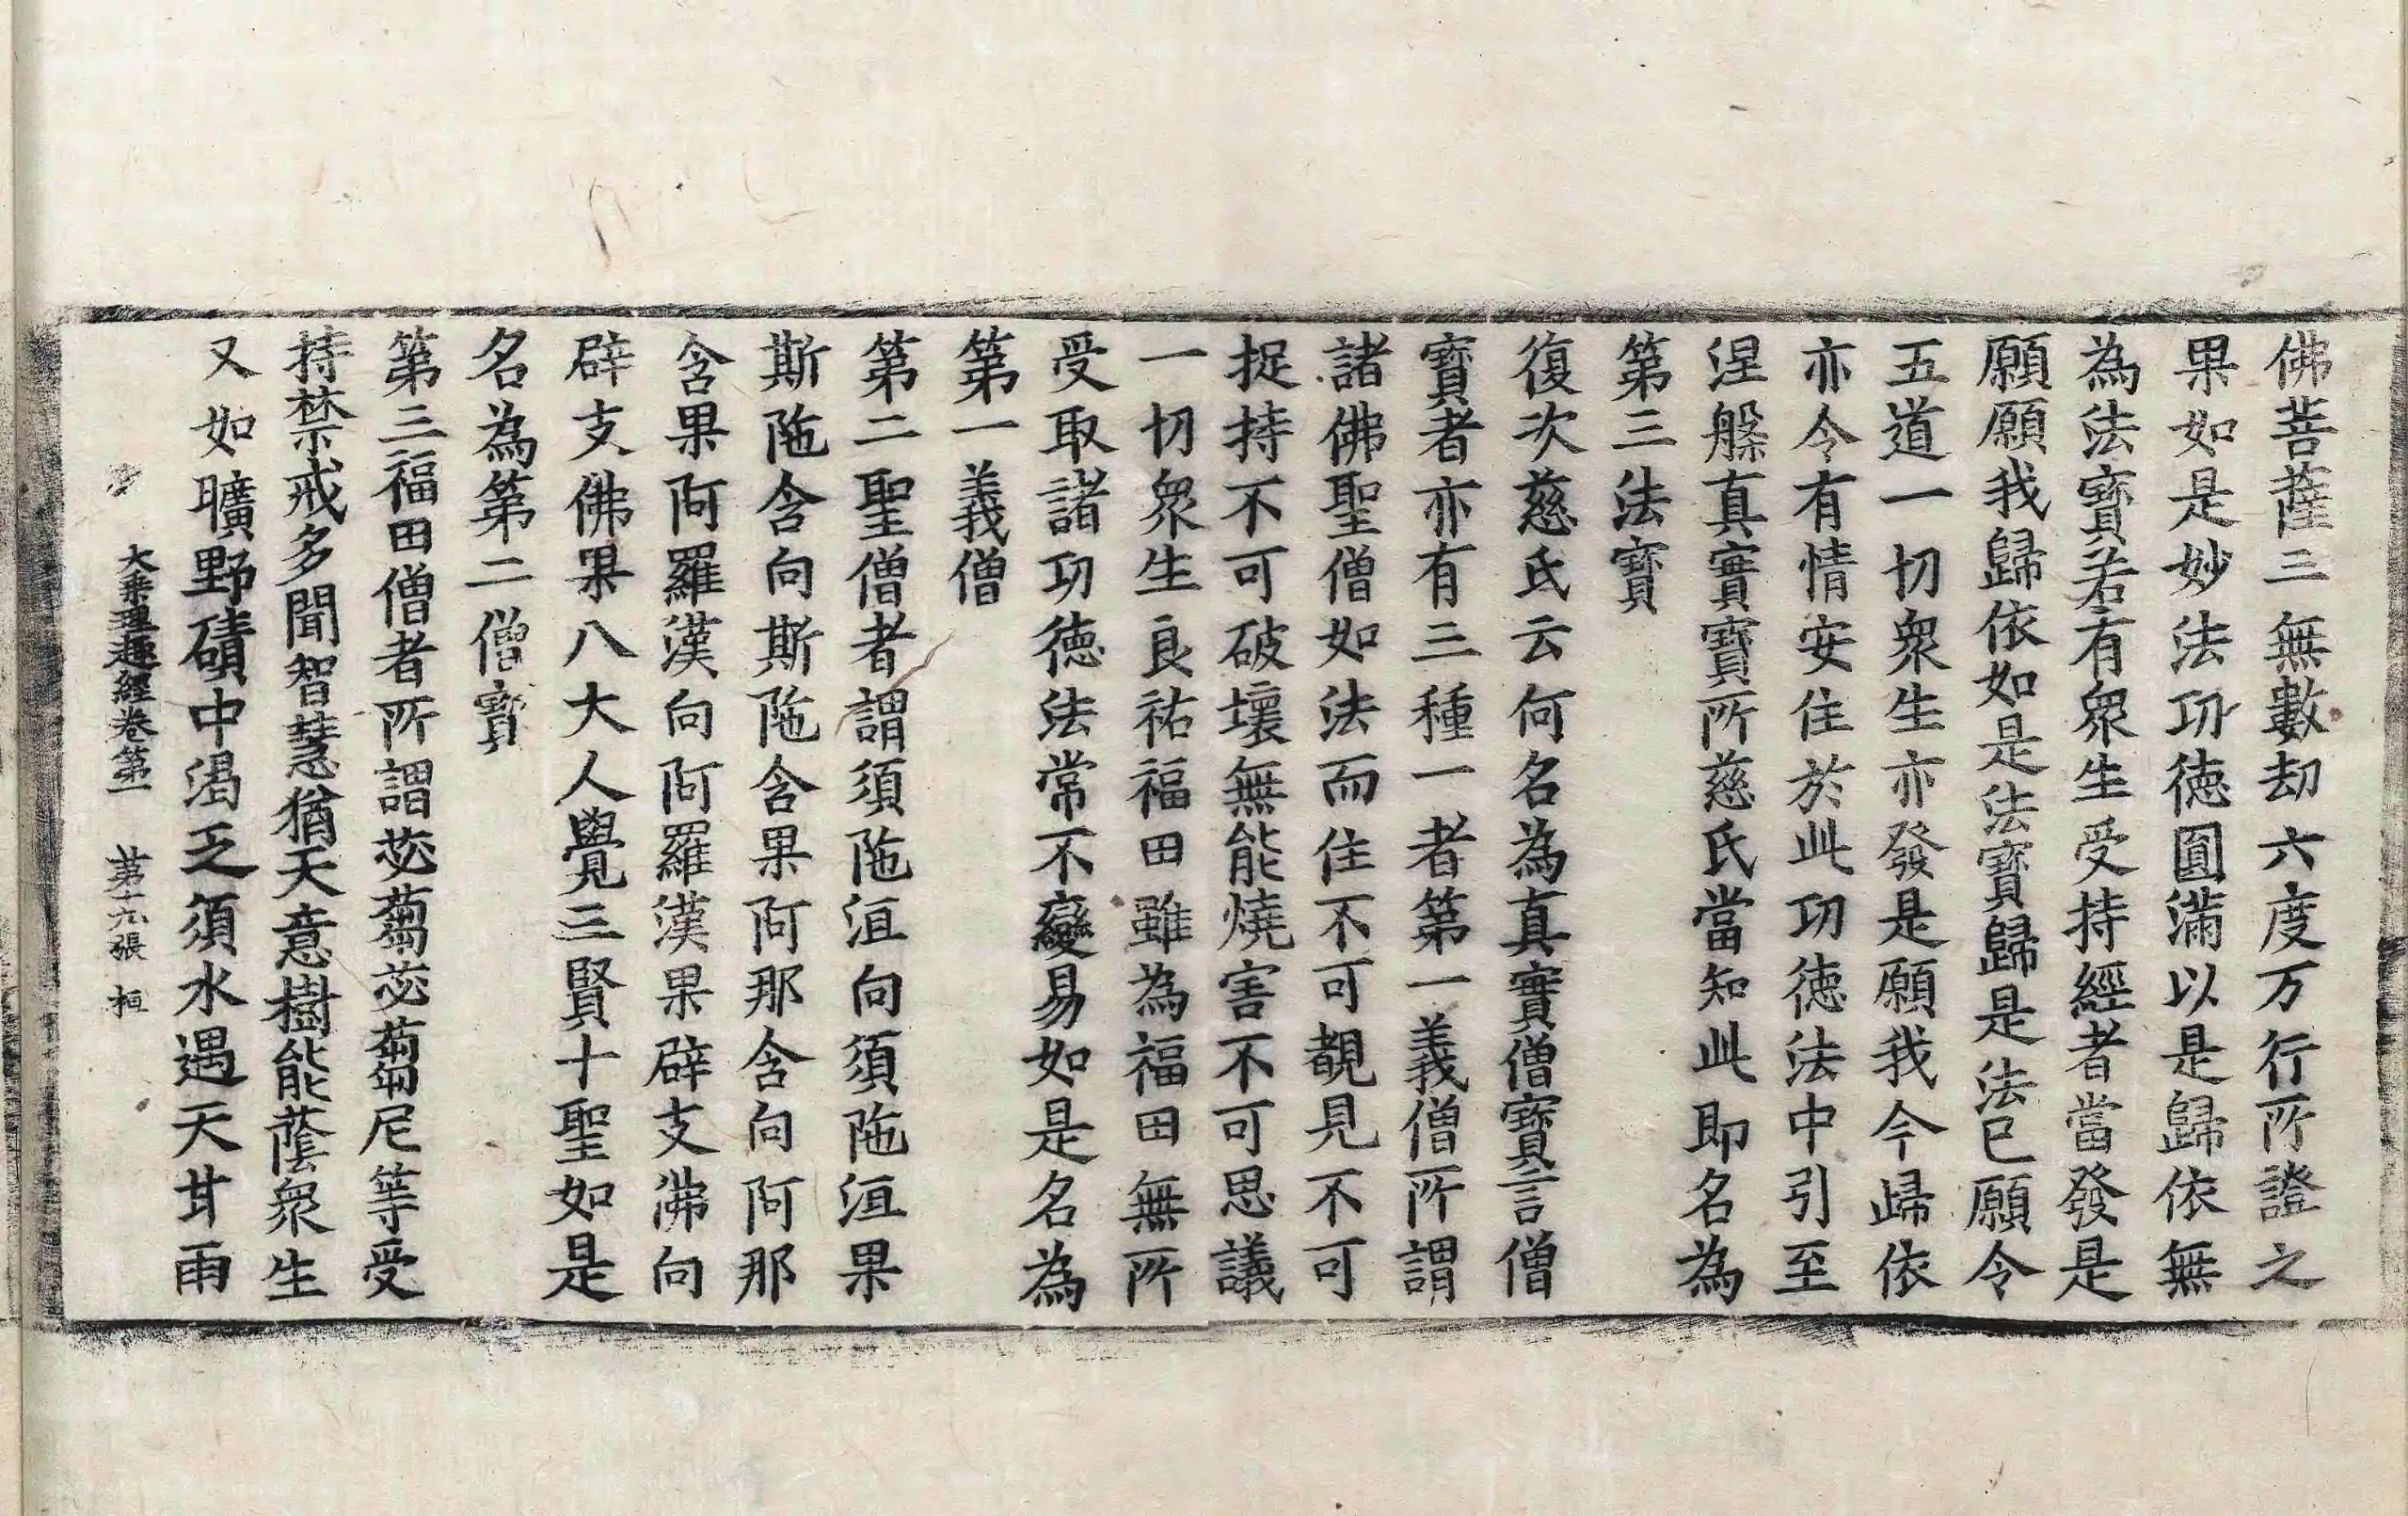 佛菩薩三無數劫六度万行所證之
果如是妙法功德圓滿以是歸依無
為法寶若有衆生受持經者當發是
願願我歸依如是法寶歸是法已願令
五道一切衆生亦發是願我今歸依
亦令有情安住於此功德法中引至
涅槃真實寶所慈氏當知此即名為
第三法寶
復次慈氏云何名為真實僧寶言僧
寶者亦有三種一者第一義僧所謂
諸佛聖僧如法而住不可覩見不可
捉持不可破壞無能燒害不可思議
一切衆生良祐福田雖為福田無所
受取諸功德法常不變易如是名為
第一義僧
第二聖僧者謂須陁洹向須陁洹果
斯陁含向斯陁含果阿那含向阿那
含果阿羅漢向阿羅漢果辟支佛向
辟支佛果八大人覺三賢十聖如是
名為第二僧寶
第三福田僧者所謂苾蒭苾蒭尼等受
持禁戒多聞智慧猶天意樹能蔭衆生
又如曠野磧中渴乏須水遇天甘雨
大乗理趣經卷第一 第十九張 桓